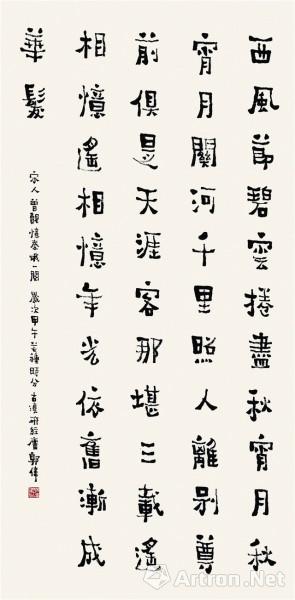 西風節碧雲捲盡秋宵月秋
宵月關河千里照人離別尊
前俱是天涯客那堪三載遙
相憶遙相憶年光依舊漸成
華髮
宋人曾覿憶秦娥一闋 歲次甲午芒種時分 郭偉
Artron.Net